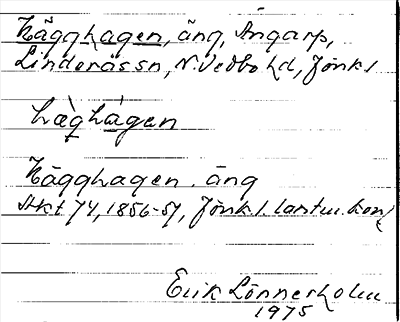 Hägghagen, äng, Ångarp,
Linderåssn, N. Vedbo hd, Jönk.l
hæ̀ghágen
Hägghagen. äng
Akt 74, 1856-57, Jönk.l. lantm. kon
Erik Lönnerholm
1975